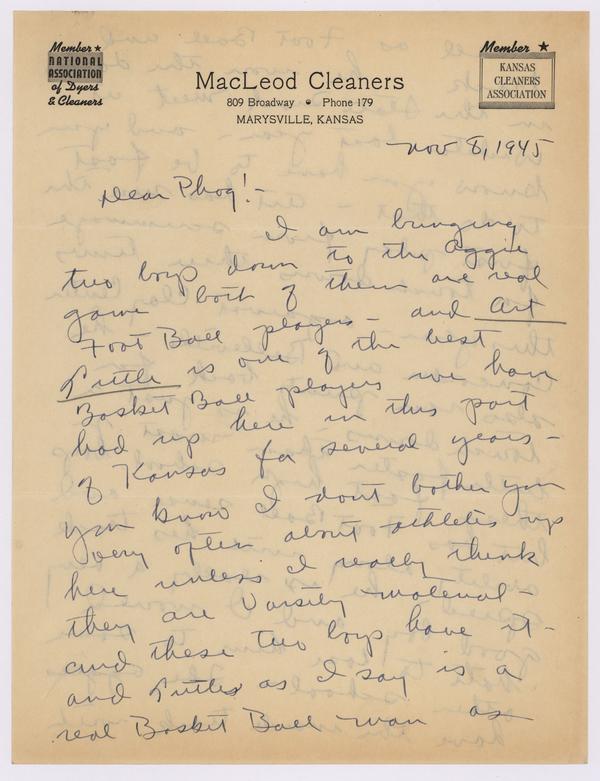 Member ★
NATIONAL
ASSOCIATION
of Dyers
& Cleaners
MacLeod Cleaners
809 Broadway • Phone 179
MARYSVILLE, KANSAS
Member ★
KANSAS
CLEANERS
ASSOCIATION
Nov 8, 1945
Dear Phog! -
I am bringing
two boys down to the Aggie
game both of them are real
Foot Ball players - and Art
Little is one of the best
Basket Ball players we have
had up here in this part
of Kansas for several years -
you know I dont bother you
very often about athletes up
here unless I really think
they are Varsity material -
and these two boys have it -
and Little as I say is a
real Basket Ball man as